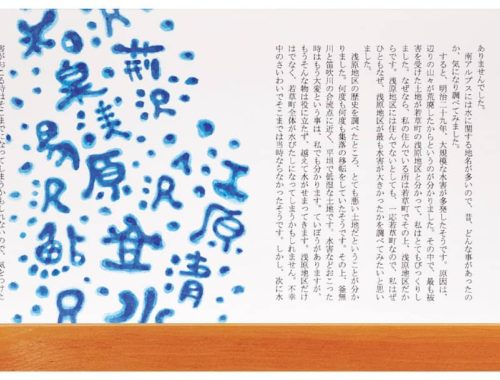 ありませんでした。
南アルプスには水に関する地名が多いので、昔、どんな事があったの
か、気になり調べてみました。
すると、明治二十九年、大規模な水害が多発したそうです。原因は、
辺りの山々が荒廃したからというのが分かりました。その中で、最も被
害を受けた土地が若草町の浅原地区と分かって、私はとてもびっくりし
ました。なぜなら、私の住んでいる所は若草町でその上、浅原地区だか
らです。浅原地区には住んでないとしても、一応若草町なので、私はぜ
ひともなぜ、浅原地区が最も水害が大きかったかを調べてみたいと思い
ました。
浅原地区の歴史を調べたところ、とても悪い土地だということが分か
りました。何度も何度も集落の移転をしていたそうです。その上、釜無
川と笛吹川の合流点に近く、平坦で低湿な土地です。水害などおこった
時はもう大変という事は、私でも分かります。ていぼうがありますが、
もうそんな物は役に立たず、越えて水がせまってきます。浅原地区だけ
はでなく、若草町全体が水びたしになってしまうかもしれません。不幸
中のさいわいでそこまでは当時ならなかったそうです。しかし、次に水
江原
清水
荊沢
浅原
泉
鮎沢
害がおこる時はそこまでになってしまうかもしれないので、気をつけた